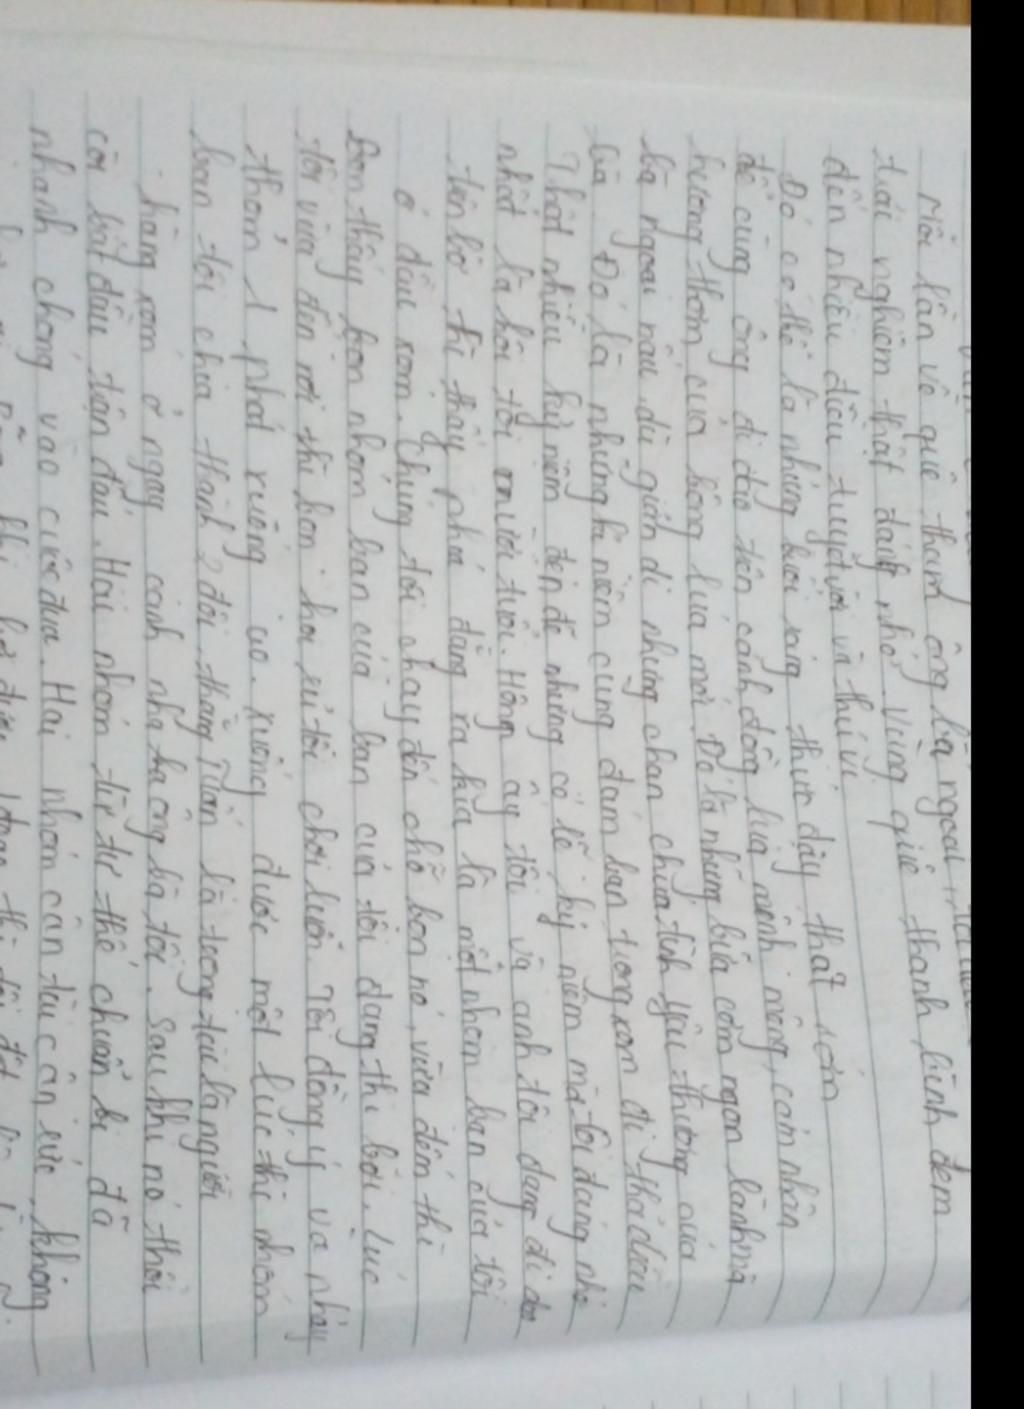 Mỗi lần về quê thăm ông bà ngoại
trải nghiệm thật đáng nhớ. Vùng quê thanh bình đem
đến nhiều điều tuyệt vời và thú vị
Đó có thể là những buổi sáng thức dậy thật sớm
để cùng ông đi dạo trên cánh đồng lúa mênh mông, cảm nhận
hương thơm của bông lúa mới. Đó là những bữa cơm ngon lành mà
bà ngoại nấu dù giản dị nhưng chan chứa tình yêu thương của
bà. Đó là những kỉ niệm cùng đám bạn trong xóm đi thả diều
Thật nhiều kỷ niệm đẹp đẽ nhưng có lẽ kỷ niệm mà tôi đáng nhớ
nhất là hồi tôi mười tuổi. Hôm ấy tôi và anh tôi đang đi dạo
trên bờ thì thấy phía đằng xa kia là một nhóm bạn của tôi
ở đầu xóm. Chúng tôi chạy đến chỗ bọn nó, vừa đếm thì
bọn thấy bọn nhóm bạn của bạn của tôi đang thi bơi. Lúc
tôi vừa đến nơi thì bọn họ rủ tôi chơi luôn. Tôi đồng ý và nhảy
thỏm 1 phát xuống ao. Xuống được một lúc thì nhóm
bạn tôi chia thành 2 đội. thằng Tuấn là trọng tài là người
hàng xóm ở ngay cạnh nhà của ông bà tôi. Sau khi nó thổi
còi bắt đầu trận đấu. Hai nhóm từ tư thế chuẩn bị đã
nhanh chóng vào cuộc đua. Hai nhóm cân tài cân sức, không